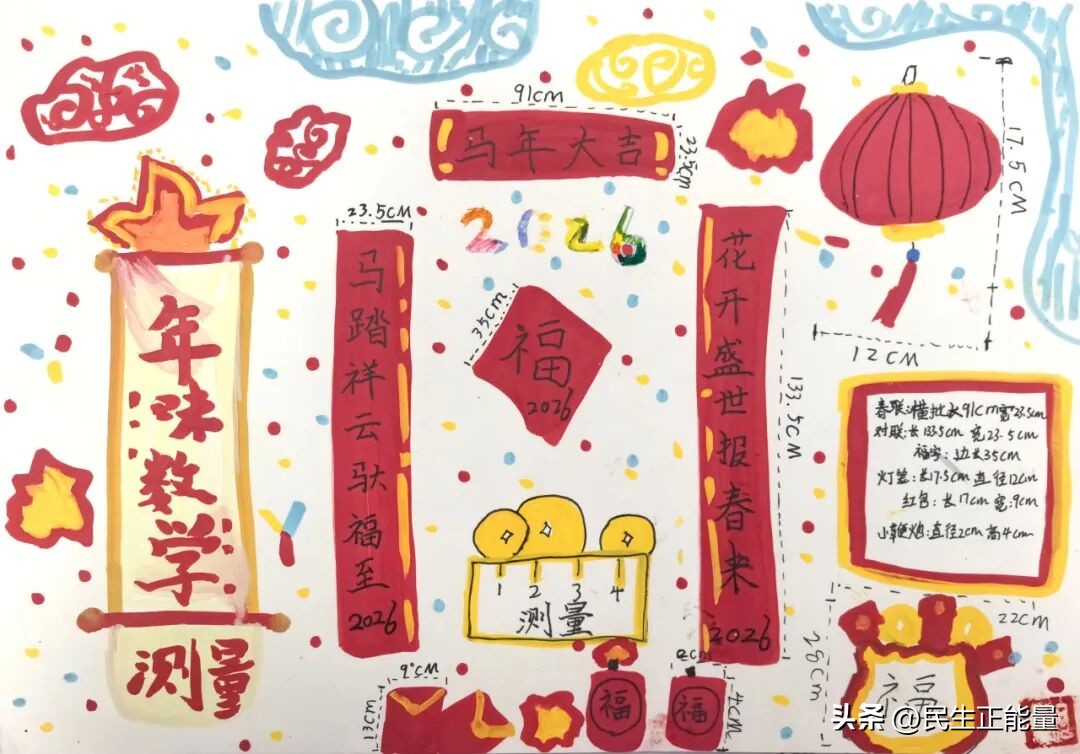 年味数学
测量
91cm
马年大吉
23.5cm
23.5cm
马踏祥云驮福至
2026
2026
35cm
福
2026
1 2 3 4
测量
花开盛世报春来
2026
133.5cm
17.5cm
12cm
春联:横批长91cm宽23.5cm
对联:长133.5cm 宽23.5cm
福字:边长35cm
灯笼:长17.5cm 直径12cm
红包:长17cm 宽:9cm
小鞭炮:直径2cm 高4cm
9cm
13cm
福
2cm
福
4cm
22cm
28cm
福
头条 @民生正能量